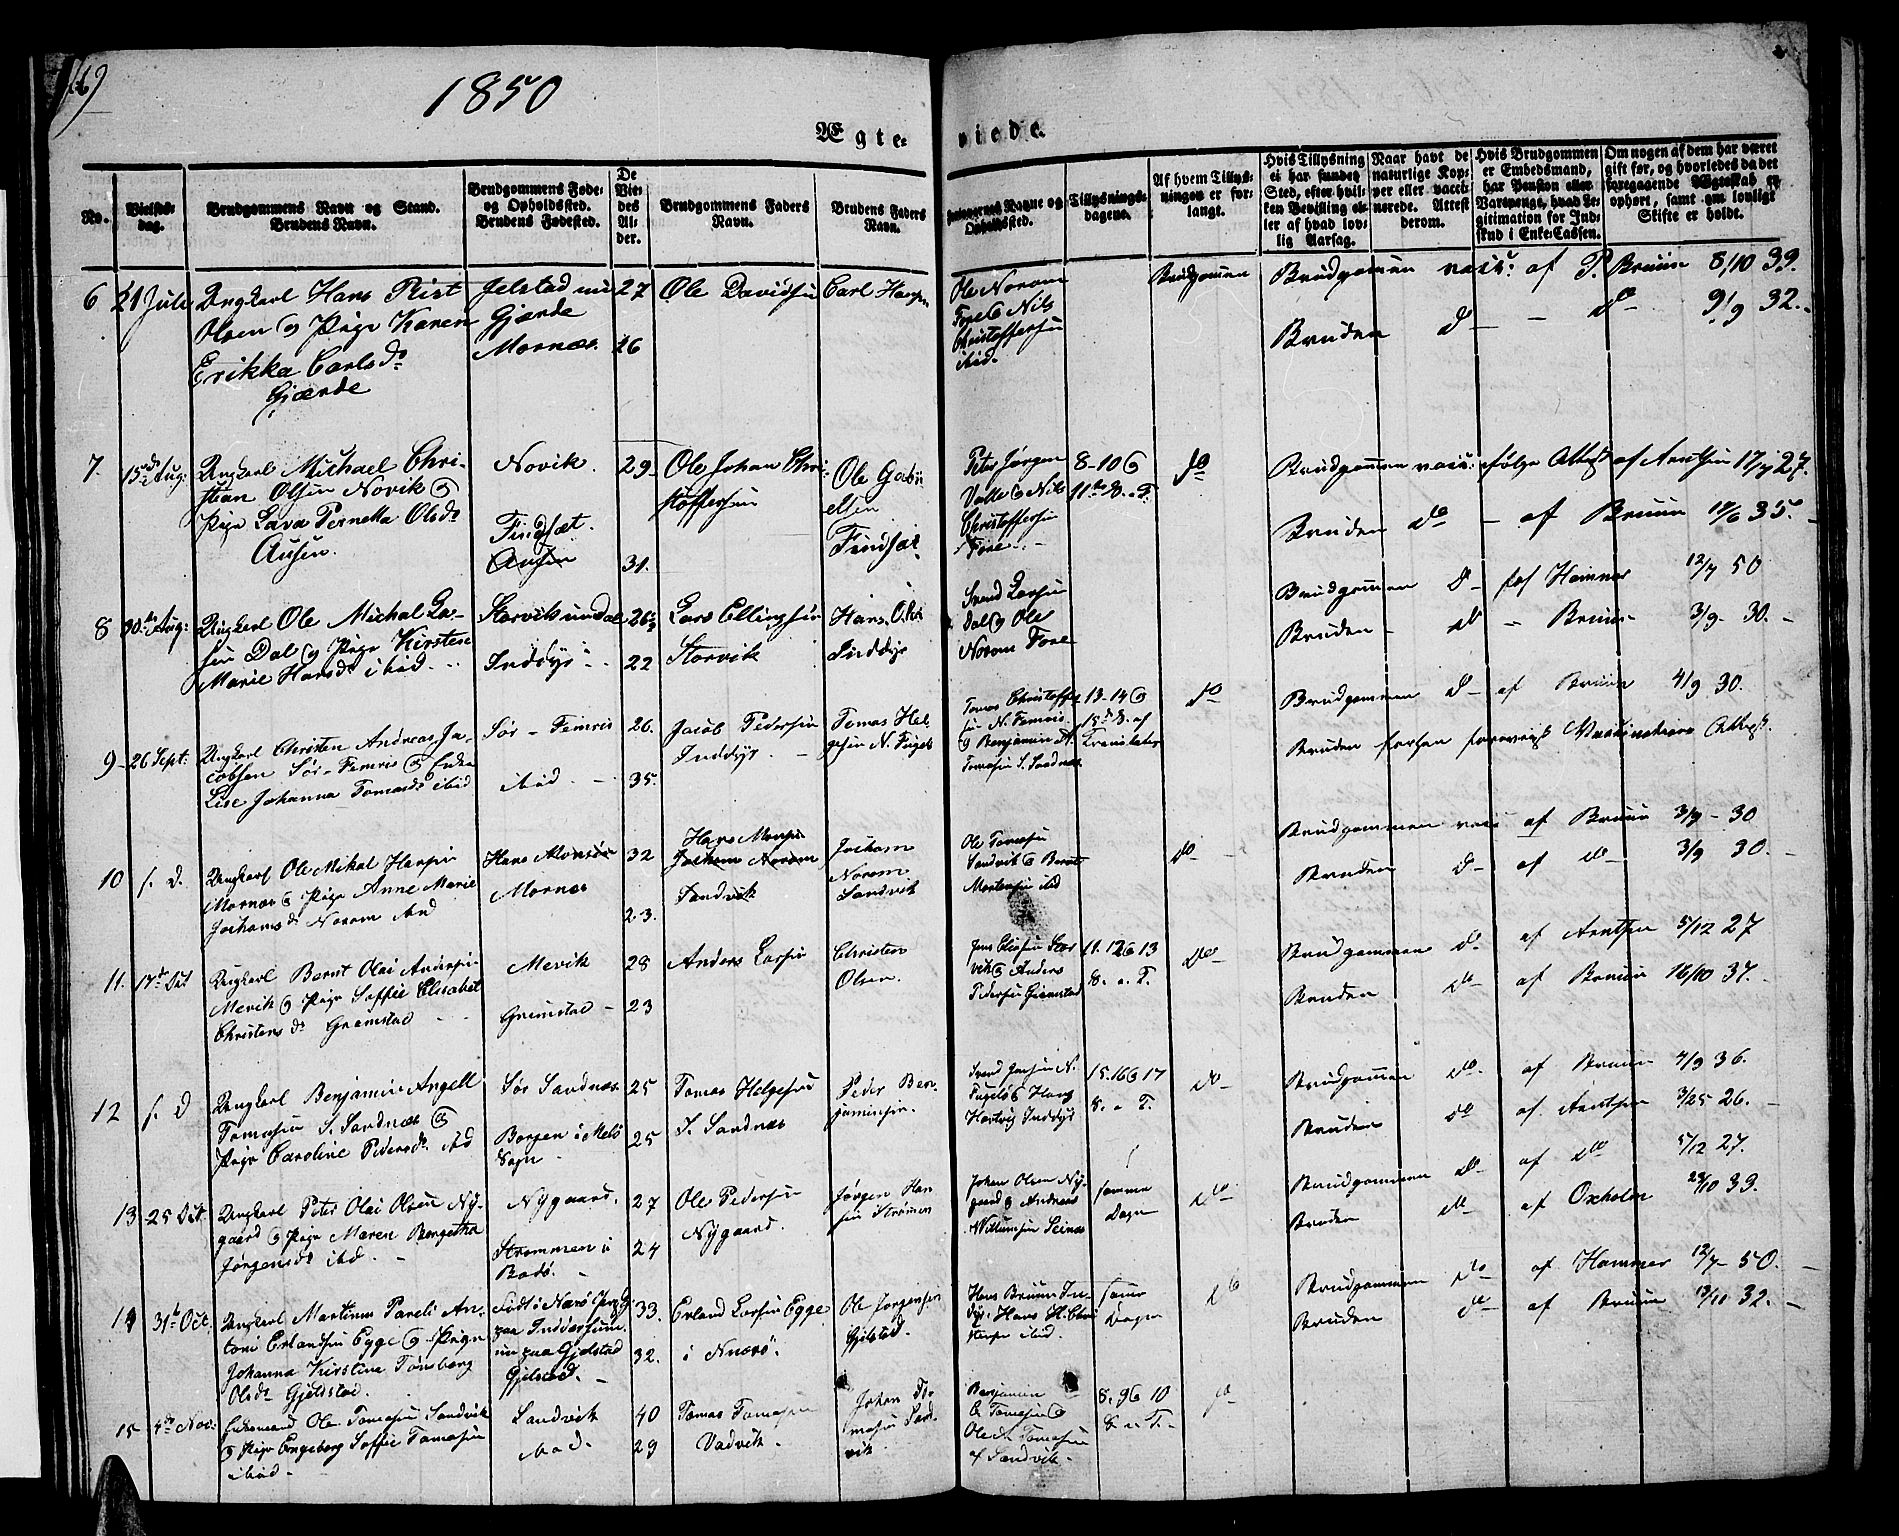 1850
Ægte-
viede.
No.
Vielses-
dag.
Brudgommens Navn og Stand.
Brudens Navn.
Brudgommens Føde-
og Opholdssted.
Brudens Fødested.
De
Vie-
des
Al-
der.
Brudgommens Faders
Navn.
Brudens Faders
Navn.
Forlovernes Navne og
Opholdssted.
Tillysnings-
dagene.
Af hvem Tillys-
ningen er for-
langt.
Hvis Tillysning
ei har fundet
Sted, efter hvil-
ken Bevilling el-
ler af hvad lov-
lig Aarsag.
Naar havt de
naturlige Kop-
per eller vacci-
nerede. Attest
derom.
Hvis Brudgommen
er Embedsmand,
har Pension eller
Vartpenge, hvad Le-
gitimation for Ind-
skud i Enke-Cassen.
Om nogen af dem har været
gift før, og hvorledes da det
foregaaende Ægteskab er
ophørt, samt om lovligt
Skifte er holdt.
6 21 Juli
Ungkarl Hans Rist
Olsen og Pige Karen
Erikka Carlsdr
Gjærde
Jelstad nu
Gjærde
Mornæs
27
26
Ole Davidsen
Carl Hansen
Ole Norum
Fore og Nils
Christoffersen
ibid.
Brudgommen
Brudgommen vacc. af P. Bruun 8/10 39.
Bruden do - - do 9/9 32.
7. 15de Aug:
Ungkarl Michael Chri-
stian Olsen Novik og
Pige Lava Pernella Olsdr
Ausen.
Novik.
Findset.
Ausen
29
31.
Ole Johan Chri-
stoffersen
Ole Gabri
elsen
Findset
Peter Jørgen
Valle og Nils
Christoffersen
Fore
8-10 og
11te S. e. T.
do
Brudgommen vacc. følge Attest af Arntsen 17/7 27.
Bruden do - af Bruun 17/6 35.
8 30te Aug:
Ungkarl Ole Michal La-
sen Dal og Pige Kirsten
Marie Hansdr ibid
Storvik nu Dal
Inddyr
26
22
Lars Ellingsen
Storvik
Hans Ols
Inddyr
Svend Larsen
Dal og Ole
Norum Fore
Brudgommen do af Hammer 12/7 50
Bruden - do - Bruun 3/9 30.
9 26 Sept:
Ungkarl Christen Andreas Ja-
cobsen Sør-Femris og Enke
Lise Johanna Tomasdr ibid
Sør-Femris
ibid.
26.
35.
Jacob Pedersen
Inddyr
Tomas Hel
gesen N. Fugelø
Tomas Christoffer
sen N. Femris
og Benjamin A.
Tomasen S. Sandnæs
13. 14 og
15de S. af
Trinitatis
do
Brudgommen do af Bruun 4/9 30.
Bruden forsen forevist Vaccinations Attest.
10 s. D.
Ungkarl Ole Mikal Hansen
Mornæs og Pige Anne Marie
Jochumsdr Norum ibid
Hans Monsen
Mornæs
32
23.
Hans Monsen
Jochum Norum
Sandvik
Jochum
Norum
Sandvik
Ole Tomasen
Sandvik og Bernt
Mortensen ibid
do
Brudgommen vacc af Bruun 3/9 - 30
Bruden do af do 3/9 30.
11. 17de Oct
Ungkarl Bernt Olai Andersen
Mevik og Pige Soffie Elisabet
Christensdr Grimstad
Mevik
Grimstad
28
23
Anders Larsen
Christen
Olsen.
Jens Eliasen Stor
vik og Anders
Pedersen Grimstad
11. 12 og 13
S. e. T.
do
Brudgommen do af Arntsen 5/12 27
Bruden do af Bruun 16/10 37.
12 s. D
Ungkarl Benjamin Angell
Tomasen S. Sandnæs og
Pige Caroline Pedersdr ibid
Sør Sandnæs
Borgen i Melø
Sogn
25
25
Tomas Helgesen
S. Sandnæs
Peder Ben
jaminsen.
Svend Jensen N.
Fugelø og Hans
Hartvig Inddyr
15. 16 og 17
S. e. T.
do
Brudgommen do. af Bruun 4/9 36.
Bruden do af. Arntsen 3/25 26.
13 25 Oct.
Ungkarl Peter Olai Olsen Ny-
gaard og Pige Maren Bergetha
Jørgensdr ibid.
Nygaard.
Strømmen i
Bodø.
27
24
Ole Pedersen
Nygaard.
Jørgen Han
sen Strømmen
Johan Olsen Ny-
gaard og Andreas
Willumsen Seines
samme
Dage
do
Brudgommen do af do 5/12 27.
Bruden do af Oxholm 29/10 39.
14 31te Oct.
Ungkarl Martinus Pareli An-
toni Erlandsen Egge og Pigen
Johanna Kirstine Tønsberg
Olsdr Gjelstad.
Født i Nærø Præstg.
paa Inderhun
nu paa Gjelstad
Gjelstad.
33.
32.
Erland Larsen Egge
i Nærø.
Ole Jørgensen
Gjelstad.
Hans Bruun In-
dyr. Hans H. Chri
stensen ibid.
samme
Dage
do
Brudgommen do af Hammer 12/7 50.
Bruden do af Bruun 13/11 32.
15 4de Nov:
Enkemand Ole Tomasen Sandvik
og Pige Engeborg Soffie Tomasen
ibid.
Sandvik
ibid.
40
29
Tomas Tomasen
Vadvik.
Johan To-
masen Sand
vik
Benjamin
E Tomasen og
Ole A Tomasen
af Sandvik.
8. 9 og 10
S. e. T.
do